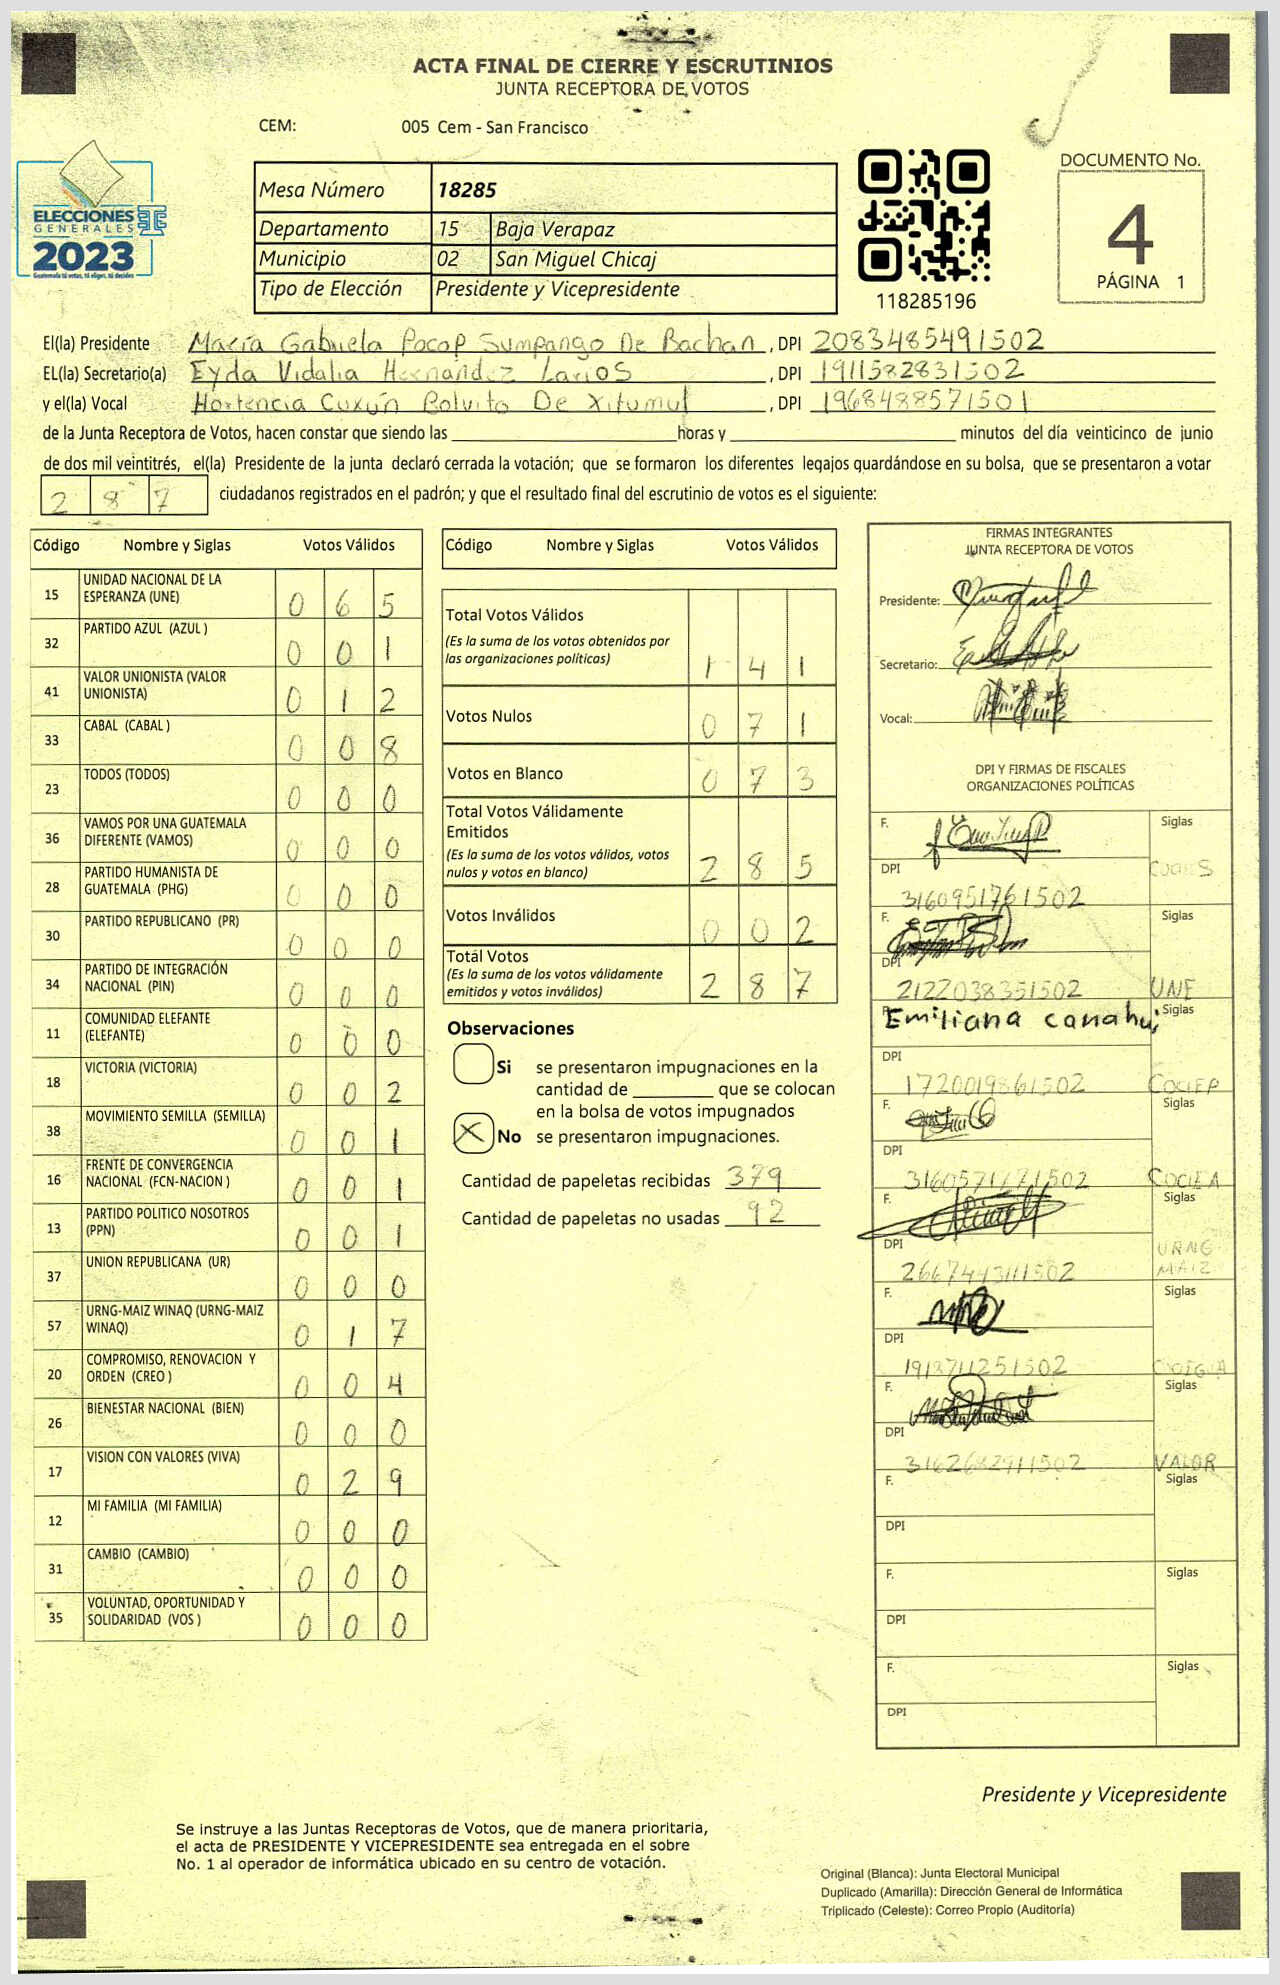 ACTA FINAL DE CIERRE Y ESCRUTINIOS
JUNTA RECEPTORA DE VOTOS
CEM: 005 Cem - San Francisco
ELECCIONES
GENERALES
2023
Guatemala tú votas, tú eliges, tú decides
Mesa Número 18285
Departamento 15 Baja Verapaz
Municipio 02 San Miguel Chicaj
Tipo de Elección Presidente y Vicepresidente
118285196
DOCUMENTO No.
4
PÁGINA 1
El(la) Presidente María Gabriela Pocop Sumpango De Bachan, DPI 2083485491502
EL(la) Secretario(a) Eyda Vidalia Hernandez Larios, DPI 1911582831502
y el(la) Vocal Hortencia Cuxún Bolvito De Xitumul, DPI 1968488571501
de la Junta Receptora de Votos, hacen constar que siendo las horas y minutos del día veinticinco de junio
de dos mil veintitrés, el(la) Presidente de la junta declaró cerrada la votación; que se formaron los diferentes legajos quardándose en su bolsa, que se presentaron a votar
2 8 7 ciudadanos registrados en el padrón; y que el resultado final del escrutinio de votos es el siguiente:
Código Nombre y Siglas Votos Válidos
15 UNIDAD NACIONAL DE LA
ESPERANZA (UNE) 0 6 5
32 PARTIDO AZUL (AZUL ) 0 0 1
41 VALOR UNIONISTA (VALOR
UNIONISTA) 0 1 2
33 CABAL (CABAL ) 0 0 8
23 TODOS (TODOS) 0 0 0
36 VAMOS POR UNA GUATEMALA
DIFERENTE (VAMOS) 0 0 0
28 PARTIDO HUMANISTA DE
GUATEMALA (PHG) 0 0 0
30 PARTIDO REPUBLICANO (PR) 0 0 0
34 PARTIDO DE INTEGRACIÓN
NACIONAL (PIN) 0 0 0
11 COMUNIDAD ELEFANTE
(ELEFANTE) 0 0 0
18 VICTORIA (VICTORIA) 0 0 2
38 MOVIMIENTO SEMILLA (SEMILLA) 0 0 1
16 FRENTE DE CONVERGENCIA
NACIONAL (FCN-NACION ) 0 0 1
13 PARTIDO POLITICO NOSOTROS
(PPN) 0 0 1
37 UNION REPUBLICANA (UR) 0 0 0
57 URNG-MAIZ WINAQ (URNG-MAIZ
WINAQ) 0 1 7
20 COMPROMISO, RENOVACION Y
ORDEN (CREO ) 0 0 4
26 BIENESTAR NACIONAL (BIEN) 0 0 0
17 VISION CON VALORES (VIVA) 0 2 9
12 MI FAMILIA (MI FAMILIA) 0 0 0
31 CAMBIO (CAMBIO) 0 0 0
35 VOLUNTAD, OPORTUNIDAD Y
SOLIDARIDAD (VOS ) 0 0 0
Código Nombre y Siglas Votos Válidos
Total Votos Válidos
(Es la suma de los votos obtenidos por
las organizaciones políticas) 1 4 1
Votos Nulos 0 7 1
Votos en Blanco 0 7 3
Total Votos Válidamente
Emitidos
(Es la suma de los votos válidos, votos
nulos y votos en blanco) 2 8 5
Votos Inválidos 0 0 2
Total Votos
(Es la suma de los votos válidamente
emitidos y votos inválidos) 2 8 7
Observaciones
Si se presentaron impugnaciones en la
cantidad de que se colocan
en la bolsa de votos impugnados
X No se presentaron impugnaciones.
Cantidad de papeletas recibidas 379
Cantidad de papeletas no usadas 92
FIRMAS INTEGRANTES
JUNTA RECEPTORA DE VOTOS
Presidente:
Secretario:
Vocal:
DPI Y FIRMAS DE FISCALES
ORGANIZACIONES POLÍTICAS
F. Siglas
DPI
3160951761502
F. Siglas
DPI
2122038351502 UNE
Emiliana Canahui Siglas
DPI
1720019861502
F. Siglas
DPI
F. Siglas
DPI URNG
2667443111502 MAIZ
F. Siglas
DPI
F. Siglas
DPI
3162682911502 VALOR
F. Siglas
DPI
F. Siglas
DPI
F. Siglas
DPI
Presidente y Vicepresidente
Se instruye a las Juntas Receptoras de Votos, que de manera prioritaria,
el acta de PRESIDENTE Y VICEPRESIDENTE sea entregada en el sobre
No. 1 al operador de informática ubicado en su centro de votación.
Original (Blanca): Junta Electoral Municipal
Duplicado (Amarilla): Dirección General de Informática
Triplicado (Celeste): Correo Propio (Auditoría)